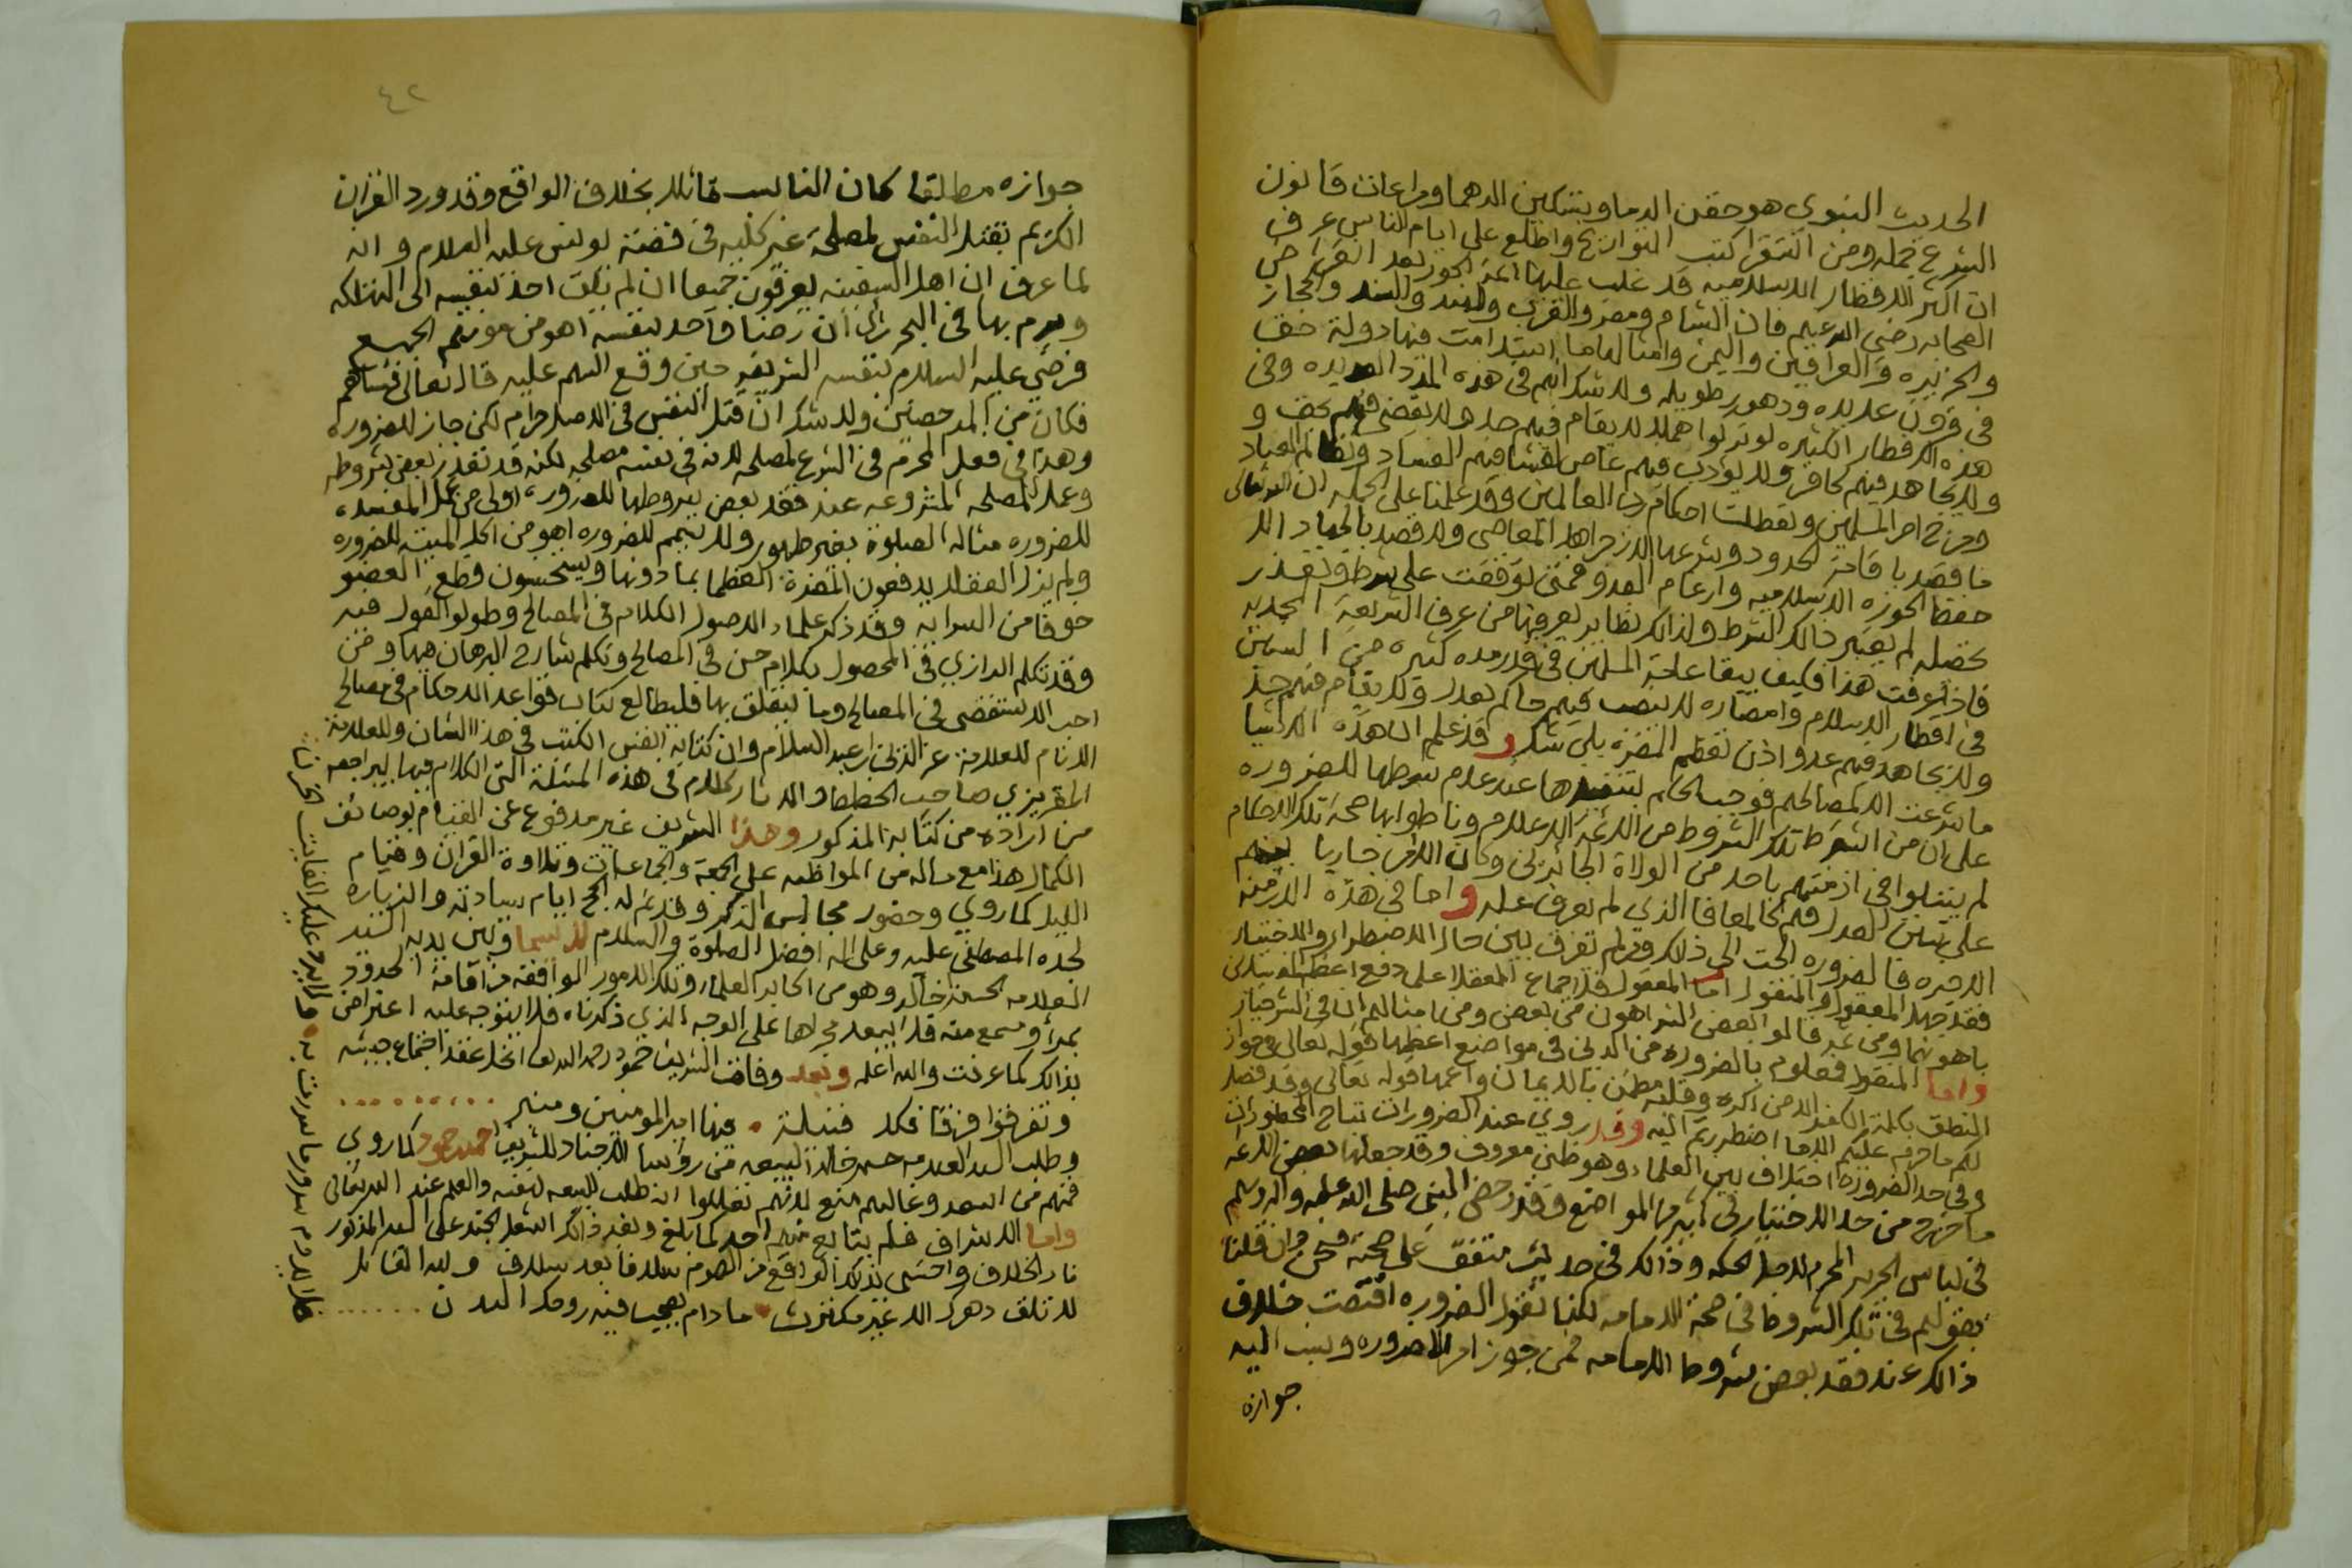 الحديث النبوي هو حقن الدما وتسكين الدهما ومراعات قانون
الشرع جمله ومن استقرا كتب التواريخ واطلع على ايام الناس عرف
ان اكثر الاقطار الاسلاميه قد غلب عليها ائمة الجور بعد انقراض
الصحابه رضي الله عنهم فان الشام ومصر والغرب والهند والسند والحجاز
والجزيره والعراقين واليمن وامثالها ما استدامت فيها دولة حق
في قرون عديده ودهور طويله ولا شك انهم في هذه المدد العديده وفي
هذه الاقطار الكثيره لو تركوا هملا لا يقام فيهم حد ولا يقضى فيهم بحق و
ولا يجاهد فيهم كافر ولا يؤدب فيهم عاص لفشا فيهم الفساد وتظالم العباد
ومرج امر المسلمين وتعطلت احكام رب العالمين وقد علمنا على الجمله ان الله تعالى
ما قصد باقامة الحدود وشرعها الا زجر اهل المعاصي ولا قصد بالجهاد الا
حفظ الحوزه الاسلاميه وارغام العدو فمتى توقفت على شرط وتعذر
تحصيله لم يعتبر ذالك الشرط ولذالك نظاير يعرفها من عرف الشريعة المحمديه
فاذا عرفت هذا فكيف يبقا عامة المسلمين في قدر مده كثيره من السنين
في اقطار الاسلام وامصاره لا ينصب فيهم حاكم بعدل ولا يقام فيهم حد
ولا يجاهد فيهم عدو اذن تعظم المضره بلى شك وقد علم ان هذه الاشيا
ما شرعت الا لمصالحهم فوجب الحكم بتنفيذها عند عدم شرطها للضروره
على ان من اشترط تلك الشروط من الائمة الاعلام وناطوا بها صحة تلك الاحكام
لم يبتلوا في ازمنتهم باحد من الولاة الجائرين وكان الامر جاريا بينهم
على سنن العدل فهم كالمعافا الذي لم يعرف عله واما في هذه الازمنه
الاخيره فالضروره الجت الى ذلك ومن لم تفرق بين حال الاضطرار والاختيار
فقد جهل المعقول والمنقول اما المعقول فلاجماع العقلا على دفع اعظم المفسدتين
باهونهما ومن ثم قالوا بعض الشر اهون من بعض ومن امثالهم ان في الشر خيار
واما المنقول فمعلوم بالضروره من الدين في مواضع اعظمها قوله تعالى في جواز
النطق بكلمة الكفر الا من اكره وقلبه مطمئن بالايمان واعمها قوله تعالى وقد فصل
لكم ما حرم عليكم الا ما اضطررتم اليه وقد روي عند الضرورات تباح المحظورات
وفي حد الضروره اختلاف بين العلماء وهو ظني معروف وقد جعلها بعض الائمه
ما خرج من حد الاختيار في كثير من المواضع وقد رخص النبي صلى الله عليه واله وسلم
في لباس الحرير المحرم لاجل الحكه وذالك في حديث متفق على صحته فنحن وان قلنا
بقولهم في تلك الشروط في صحة الامامه لكنا نقول الضروره اقتضت خلاف
ذالك عند فقد بعض شروط الامامه فمن جوز امرا لضروره ونسب اليه
جوازه
٤٢
جوازه مطلقا كان الناسب قائلا بخلاف الواقع وقد ورد القران
الكريم بقتل النفس لمصلحة غير كليه في قصة يونس عليه السلام وانه
لما عرف ان اهل السفينه يغرقون جميعا ان لم يلق احد بنفسه الى التهلكه
ويرم بها في البحر راى ان رضا واحد بنفسه اهون من موتهم الجميع
فرضي عليه السلام بنفسه الشريفه حين وقع السهم عليه قال تعالى فساهم
فكان من المدحضين ولا شك ان قتل النفس في الاصل حرام لكن جاز للضروره
وهذا في فعل المحرم في الشرع لمصلحه لانه في نفسه مصلحه لكنه قد تعذر بعض شروطه
وعمل المصلحه المشروعه عند فقد بعض شروطها للضروره اولى من عمل المفسده
للضروره مثاله الصلوة بغير طهور ولا تيمم للضروره اهون من اكل الميته للضروره
ولم يزل العقلا يدفعون المضرة العظما بما دونها ويستحسنون قطع العضو
خوفا من السرايه وقد ذكر علماء الاصول الكلام في المصالح وطولوا القول فيه
وقد تكلم الرازي في المحصول بكلام حسن في المصالح وتكلم شارح البرهان فيها ومن
احب الاستقضى في المصالح وما يتعلق بها فليطالع كتاب قواعد الاحكام في مصالح
الانام للعلامة عز الدين بن عبد السلام وان كتابه انفس الكتب في هذا الشان وللعلامة
المقريزي صاحب الخطط والاثار كلام في هذه المسئلة التي الكلام فيها ليراجعه
من اراده من كتابه المذكور وهذا الشريف غير مدفوع عن القيام بوصائف
الكمال هذا مع ماله من المواظبه على الجمعة والجماعات وتلاوة القران وقيام
الليل كما روي وحضور مجالس الذكر وقد تم له الحج ايام سيادته والزياره
لجده المصطفى عليه وعلى اله افضل الصلوة والسلام لا سيما وبين يديه السيد
العلامه الحسن خالد وهو من اكابر العلماء وتلك الامور الواقعه من اقامة الحدود
بمرأ ومسمع منه فلا يبعد محلها على الوجه الذي ذكرناه فلا يتوجه عليه اعتراض
بذالك كما عرفت والله اعلم وبعد وفات الشريف حمود رحمه الله تعالى انحل عقد اجتماع جيشه
وتفرقوا فرقا فكل قبيلة • فيها امير المومنين ومنبر
وطلب السيد العلامه حسن خالد البيعه من رؤسا الاجناد للشريف احمد حمود كما روي
فمنهم من اسعد وغالبهم منع لانهم تعللوا انه طلب البيعه لنفسه والعلم عند الله تعالى
واما الاشراف فلم يتابع منهم احد كما بلغ وبعد ذالك اشتعل الجند على السيد المذكور
نار الخلاف واحتسى بذلك الواقع من الهموم سلافا بعد سلاف ولله القائل
لا تلق دهرك الا غير مكترث • ما دام يصحب فيه روحك البدن
فلا يدوم سرور ما سررت به • ولا يرد عليك الفايت الحزن